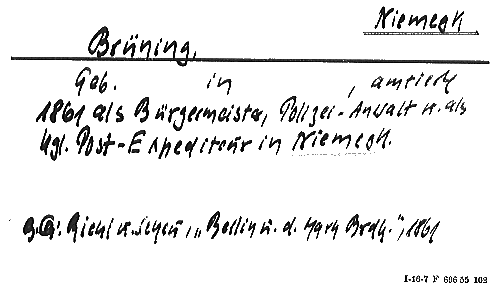 Niemegk.
Brüning,
Geb. in , amtiert
1861 als Bürgermeister, Polizei-Anwalt u. als
Kgl. Post-Expediteur in Niemegk.
Riehl u. Scheu, „Berlin u. d. Mark Brdbg.", 1861
I-16-7 F 696 55 102